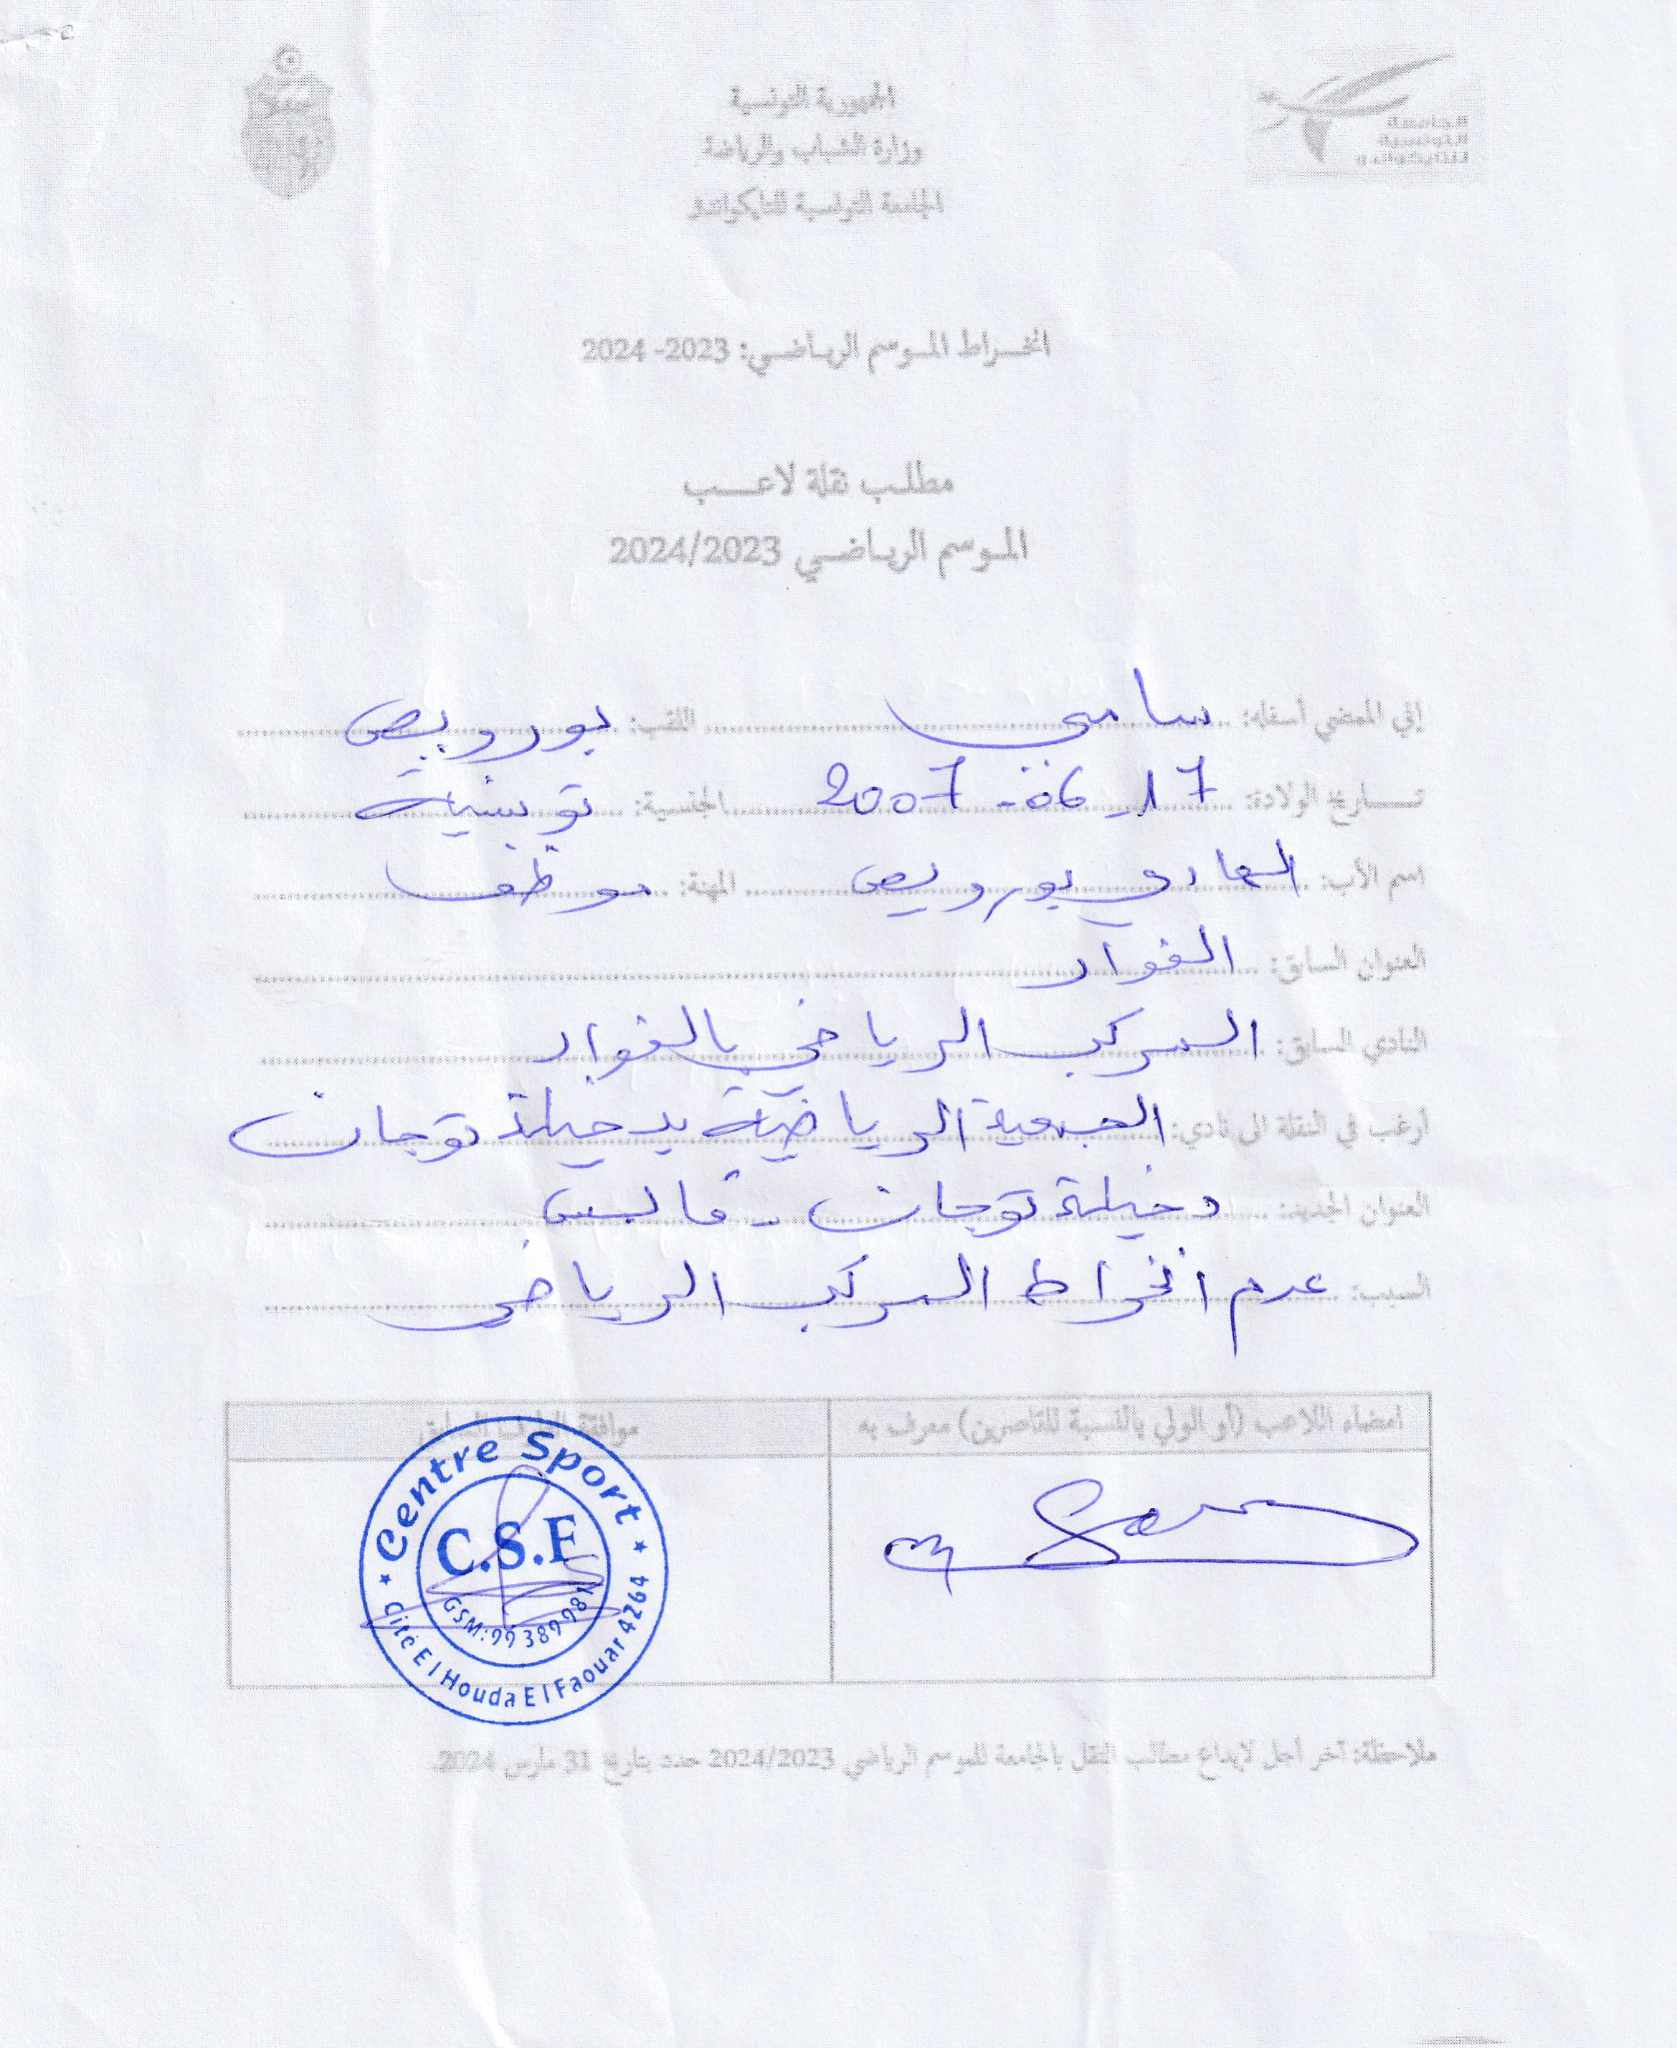 الجمهورية التونسية
وزارة الشباب والرياضة
الجامعة التونسية للتايكواندو
الجامعة
التونسية
للتايكواندو
انخــراط المــوسم الريـاضــي: 2023- 2024
مطلــب نقلة لاعــــب
المــوسم الريـاضــي 2024/2023
إني الممضي أسفله: سامي اللقب: بورويص
تــــاريخ الولادة: 17 - 06 - 2007 الجنسية: تونسية
اسم الأب: الهادي بورويص المهنة: موظف
العنوان السابق: الفوار
النادي السابق: المركب الرياضي بالفوار
أرغب في النقلة الى نادي: الجمعية الرياضية بدخيلة توجان
العنوان الجديد: دخيلة توجان - قابس
السبب: عدم انخراط المركب الرياضي
امضاء اللاعب (أو الولي بالنسبة للقاصرين) معرف به
موافقة النادي السابق
Centre Sport
C.S.F
Cité El Houda El Faouar 4264
ملاحظة: آخر أجل لإيداع مطالب النقل بالجامعة للموسم الرياضي 2024/2023 حدد بتاريخ 31 مارس 2024.